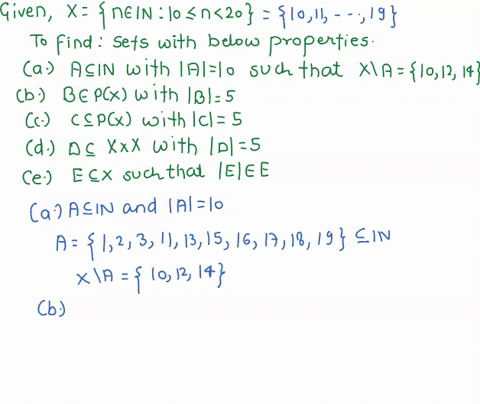 Given, X = {n∈IN : 10 ≤ n < 20} = {10, 11, ---, 19}
To find: Sets with below properties.
(a.) A⊆IN with |A|=10 such that X\A = {10,12,14}
(b.) B∈P(X) with |B|=5
(c.) C⊆P(X) with |C|=5
(d.) D⊆ X×X with |D|=5
(e.) E⊆X such that |E|∈E
(a.) A⊆IN and |A|=10
A = {1,2,3,11,13,15,16,17,18,19} ⊆IN
X\A = {10,12,14}
(b.)